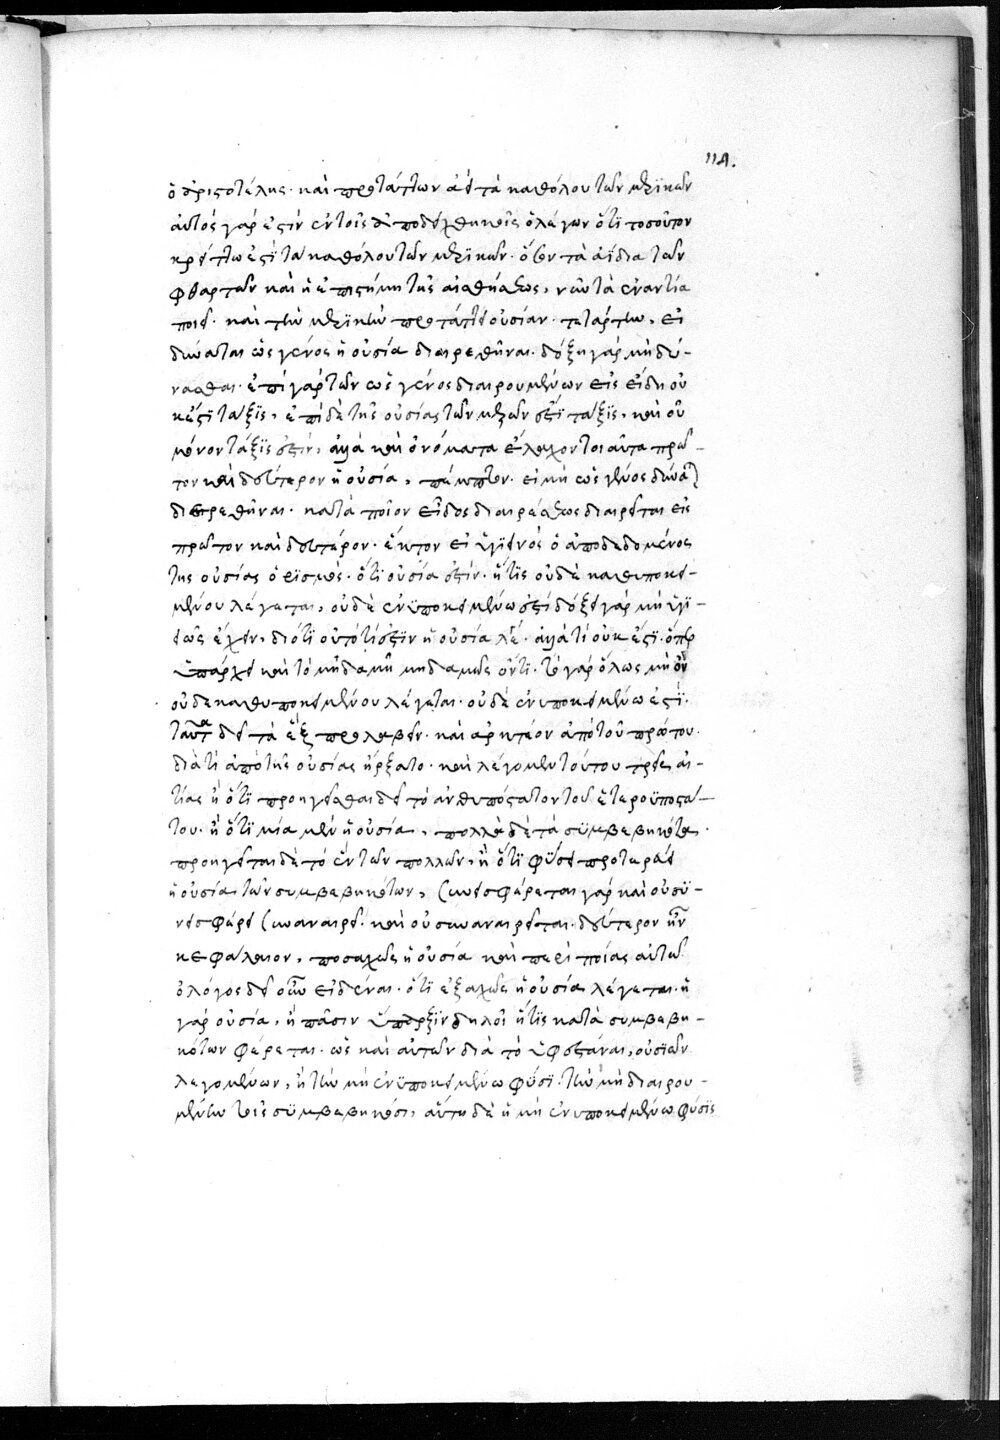 114.
ὁ ἀριστοτέλης· καὶ προτάττων ἀεὶ τὰ καθόλου τῶν μερικῶν
αὐτὸς γάρ ἐστιν ἐν τοῖς ἀποδεικτικοῖς ὁ λέγων ὅτι τοσοῦτον
κρείττω ἐστὶ τὰ καθόλου τῶν μερικῶν· ὅσον τὰ ἀΐδια τῶν
φθαρτῶν καὶ ἡ ἐπιστήμη τῆς αἰσθήσεως, νῦν τὰ ἐναντία
ποιεῖ· καὶ τὴν μερικὴν προτάττει οὐσίαν· τετάρτην, εἰ
δύναται ὡς γένος ἡ οὐσία διαιρεθῆναι· δόξῃ γὰρ μὴ δύ-
νασθαι· ἐπὶ γὰρ τῶν ὡς γένος διαιρουμένων εἰς εἴδη οὐ
κ ἔστι τάξις, ἐπὶ δὲ τῆς οὐσίας τῶν μερῶν ἐστι τάξις, καὶ οὐ
μόνον τάξις ἐστίν, ἀλλὰ καὶ ὀνόματα ἔλαχον τοιαῦτα πρώ-
τον καὶ δεύτερον ἡ οὐσία, πέμπτον· εἰ μὴ ὡς γένος δύναται
διαιρεθῆναι· κατὰ ποῖον εἶδος διαιρέσεως διαιρεῖται εἰς
πρῶτον καὶ δεύτερον· ἕκτον εἰ ὑγιεινὸς ὁ ἀποδεδομένος
τῆς οὐσίας ὁρισμός· ὅτι οὐσία ἐστίν· ἥτις οὐδὲ καθ υποκει-
μένου λέγεται, οὐδὲ ἐν ὑποκειμένω ἐστί δόξει γὰρ μὴ ὑγι-
εῶς ἔχειν, διότι οὐ τό τί ἐστιν ἡ οὐσία λέγει· ἀλλὰ τί οὐκ ἔστι· ὅπερ
ὑπάρχει καὶ τὸ μηδαμῆ μηδαμῶς ὄντι· τὸ γὰρ ὅλως μὴ ὂν
οὐδε καθυποκειμένου λέγεται· οὐδὲ ἐν υποκειμένω ἐστί·
ταῦτα δεῖ τὰ ἓξ προλαβεῖν· καὶ αρκτέον ἀπὸ τοῦ πρώτου·
διὰ τί ἀπὸ τῆς οὐσίας ἤρξατο· καὶ λέγομεν τούτου τρεῖς αἰ-
τίας ἢ ὅτι προηγεῖσθαι δεῖ τὸ αὐθυπόστατον τοῦ ἑτεροϋποστά-
του· ἢ ὅτι μία μὲν ἡ οὐσία, πολλὰ δὲ τὰ συμβεβηκότα·
προηγεῖται δὲ τὸ ἓν τῶν πολλῶν, ἢ ὅτι φύσει προτερεύει
ἡ οὐσία τῶν συμβεβηκότων, συνεισφέρεται γὰρ καὶ οὐ συ-
νεισφέρει συναναιρεῖ· καὶ οὐ συναναιρεῖται· δεύτερον ἦν
κεφάλαιον, ποσαχῶς ἡ οὐσία καὶ περὶ ποίας αὐτῷ
ὁ λόγος δεῖ οὖν εἰδέναι· ὅτι ἑξαχῶς ἡ οὐσία λέγεται· ἡ
γὰρ οὐσία, ἢ πᾶσιν ὕπαρξιν δηλοῖ ἥτις κατὰ συμβεβη-
κότων φέρεται· ὡς καὶ αὐτῶν διὰ τὸ ὑφεστάναι, οὐσιῶν
λεγομένων, ἢ τὴν μὴ ἐν ὑποκειμένω φύσι· τὴν μὴ διαιρου-
μένην τοῖς συμβεβηκόσι, αὕτη δὲ ἡ μὴ ἐν υποκειμένω φύσις